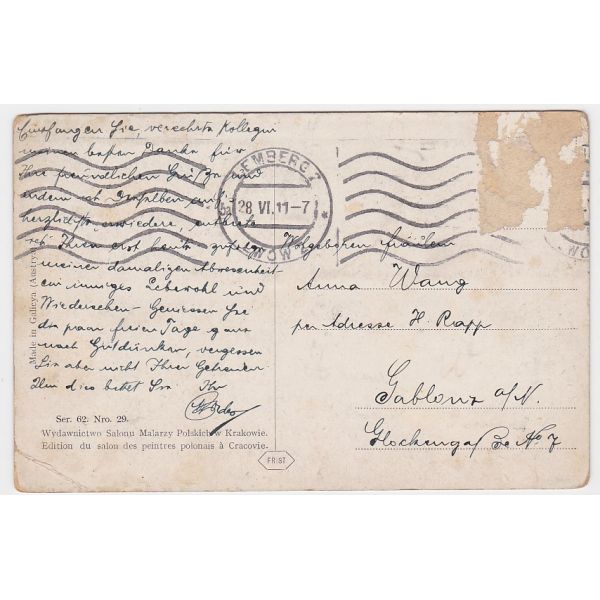 Empfangen Sie, verehrte Kollegin
meinen besten Danke für
Ihre freundlichen Grüße und
indem ich Dieselben
herzlichst erwiedere, entbiete
ich Ihnen erst heute
meiner damaligen Abwesenheit
ein inniges Lebewohl und
Wiedersehen - Geniessen Sie
die paar freien Tage ganz
nach Gutdünken, vergessen
Sie aber nicht Ihrer
Um dies bittet Sie Ihr
Made in Galicya (Austrya)
Ser. 62. Nro. 29.
Wydawnictwo Salonu Malarzy Polskich w Krakowie.
Edition du salon des peintres polonais à Cracovie.
FRIST
LEMBERG 2
28 VI. 11-7
LWÓW
Wolgeboren Fräulein
Anna Wang
per Adresse H Rapp
Gablonz a/N.
Glockengaße No 7